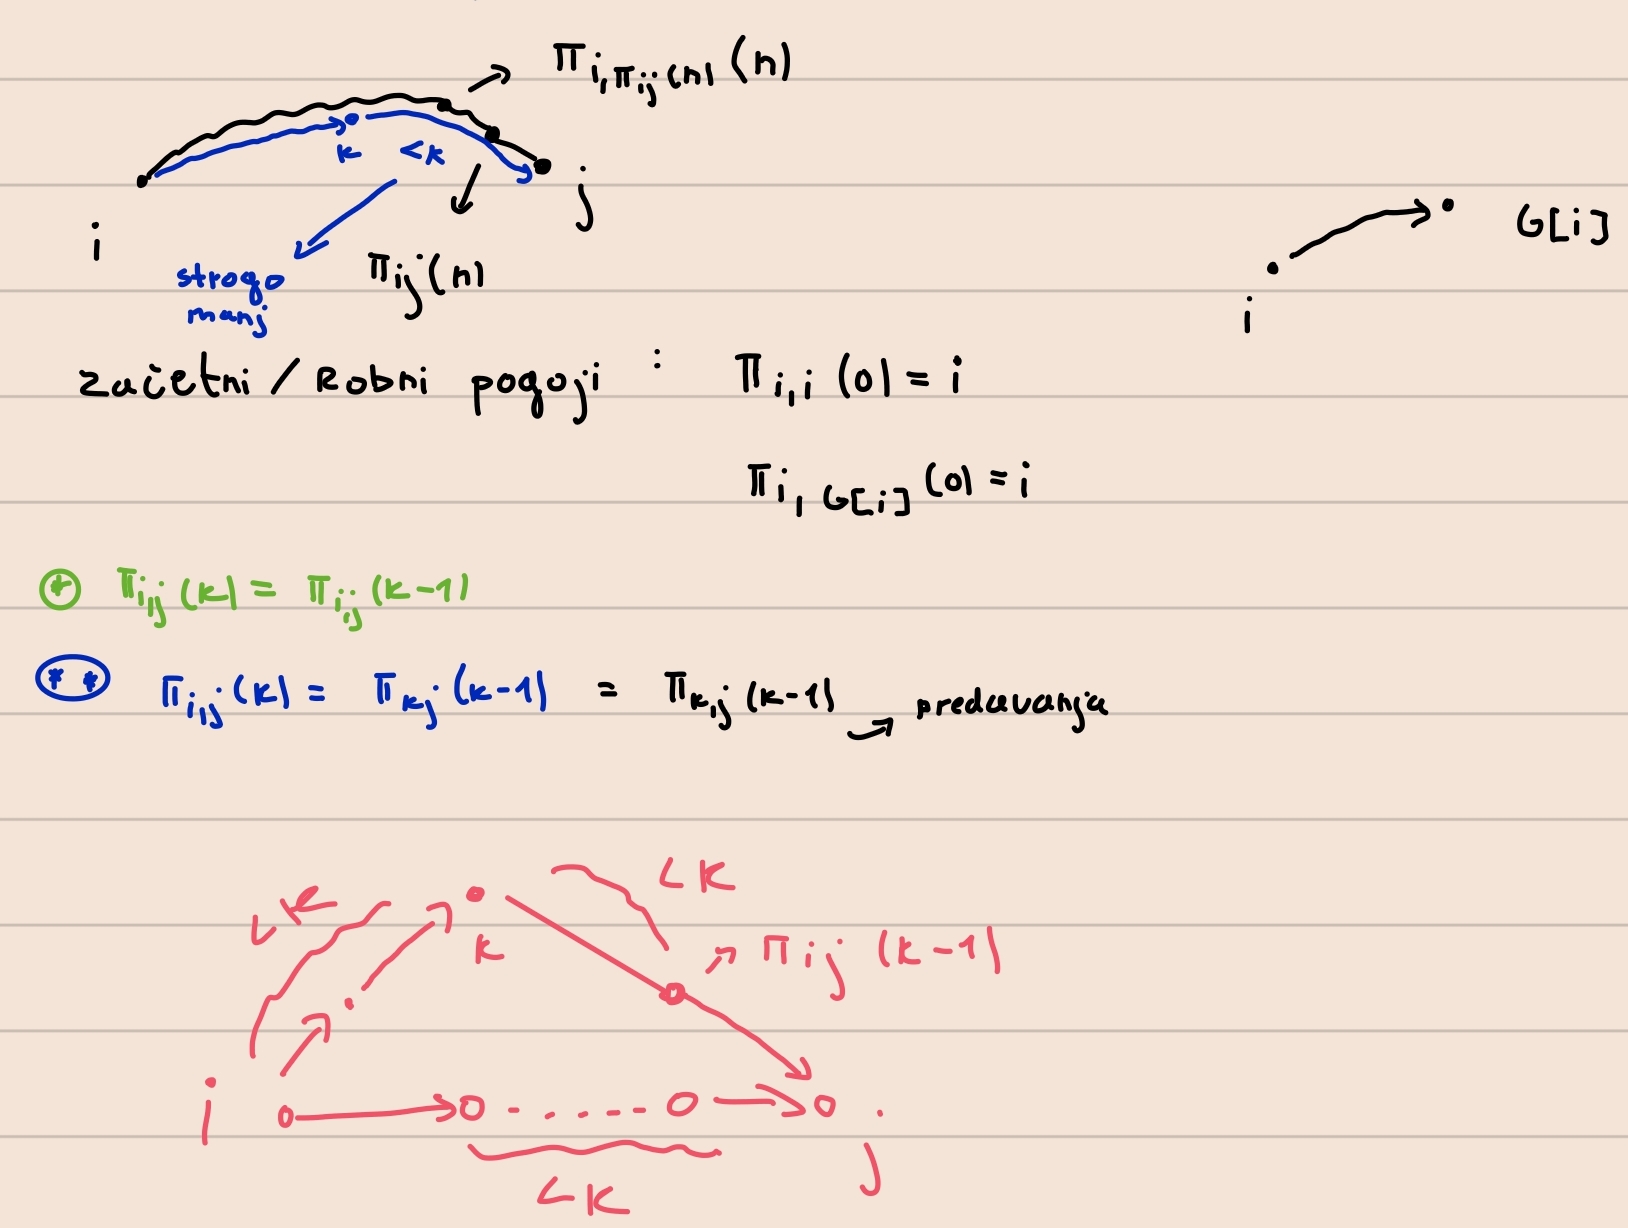 π i, π ij (n) (n)
k <k
i
j
G[i]
i
strogo
manj
π ij (n)
začetni / Robni pogoji : π i,i (0) = i
π i, G[i] (0) = i
* π i,j (k) = π i,j (k-1)
** π i,j (k) = π kj (k-1) = π k,j (k-1) → predavanja
<k
<k
k
π ij (k-1)
i
j
<k